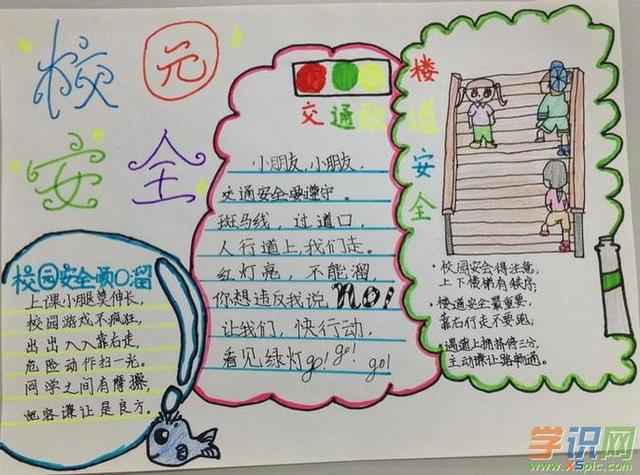 校元
安全
校园安全顺口溜
上课小腿莫伸长,
校园游戏不疯狂,
出出入入靠右走,
危险动作扫一光。
同学之间有摩擦,
宽容谦让是良方。
交通
小朋友,小朋友,
交通安全要遵守。
斑马线,过道口,
人行道上,我们走。
红灯亮,不能溜,
你想违反我说NO!
让我们,快行动,
看见绿灯go! go! go!
楼道安全
•校园安会得注意,
上下楼梯有秩序;
•楼道安全最重要,
靠右行走不要跑;
•遇道上拥挤
主动谦让路畅通。
学识网
www.xspic.com